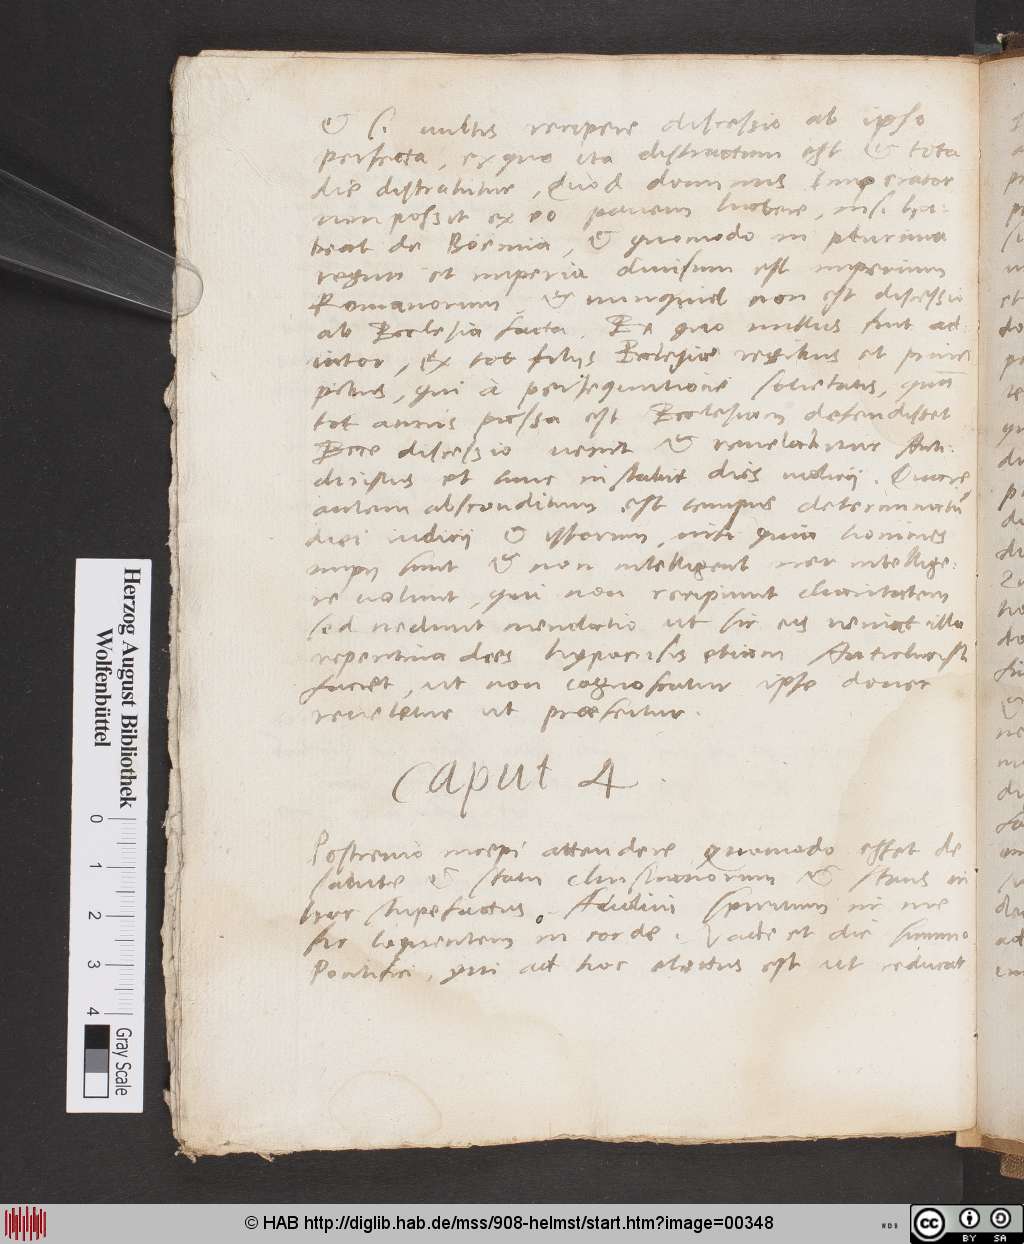 & si multis recipere discessio ab ipso
perfecta, ex quo ita distractum est & tota
die distrahitur, Quod dominus Imperator
non possit ex eo panem habere, nisi ha-
beat de Boëmia, & quomodo in plurima
regna et imperia diuisum est imperium
Romanorum & nunquid non est discessio
ab Ecclesia facta. Ex quo nullus fuit ad-
iutor, ex tot filijs Ecclesiæ regibus et princi
pibus, qui à persequutione societatis, quã
tot annis passa est Ecclesiam defendisset
Ecce discessio uenit & reuelabitur Anti-
christus et tunc instabit dies iudicij. Quare
autem absconditum est tempus determinatũ
diei iudicij & istorum, nisi quia homines
impij sunt & non intelligent nec intellige-
re uolunt, qui non recipiunt charitatem
sed credunt mendatio ut sic eis ueniat illa
repentina dies hypocrisis etiam Antichristi
faciet, ut non cognoscatur ipse donec
reueletur ut præfertur.
Caput 4.
Postremo incepi attendere quomodo esset de
salute & statu christianorum & stans in
hoc stupefactus. Audiui spiritum in me
sic loquentem in corde. Vade et dic summo
Pontifici, qui ad hoc electus est ut reducat
Herzog August Bibliothek
Wolfenbüttel
0 1 2 3 4
Gray Scale
© HAB http://diglib.hab.de/mss/908-helmst/start.htm?image=00348
WDB
cc BY SA